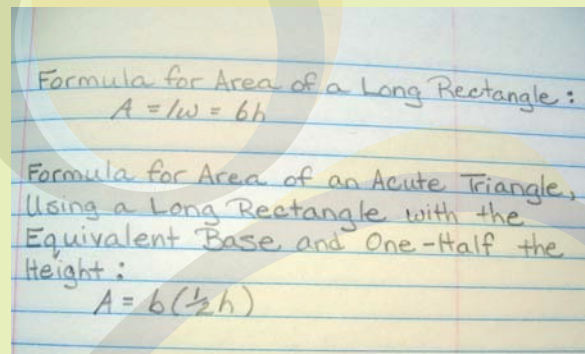 Formula for Area of a Long Rectangle:
A = lw = bh
Formula for Area of an Acute Triangle,
Using a Long Rectangle with the
Equivalent Base and One-Half the
Height:
A = b(½h)